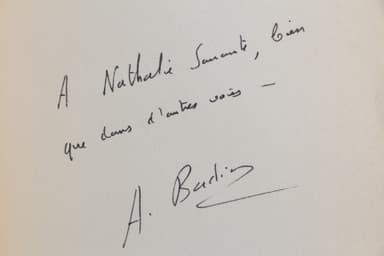 A Nathalie Sarraute, bien
que dans d'autres voies —
A. Badiou